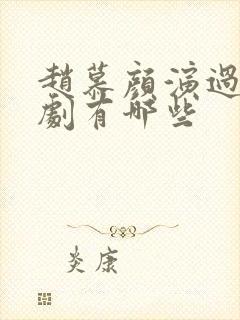 趙慕顏演過
劇有哪些
炎康